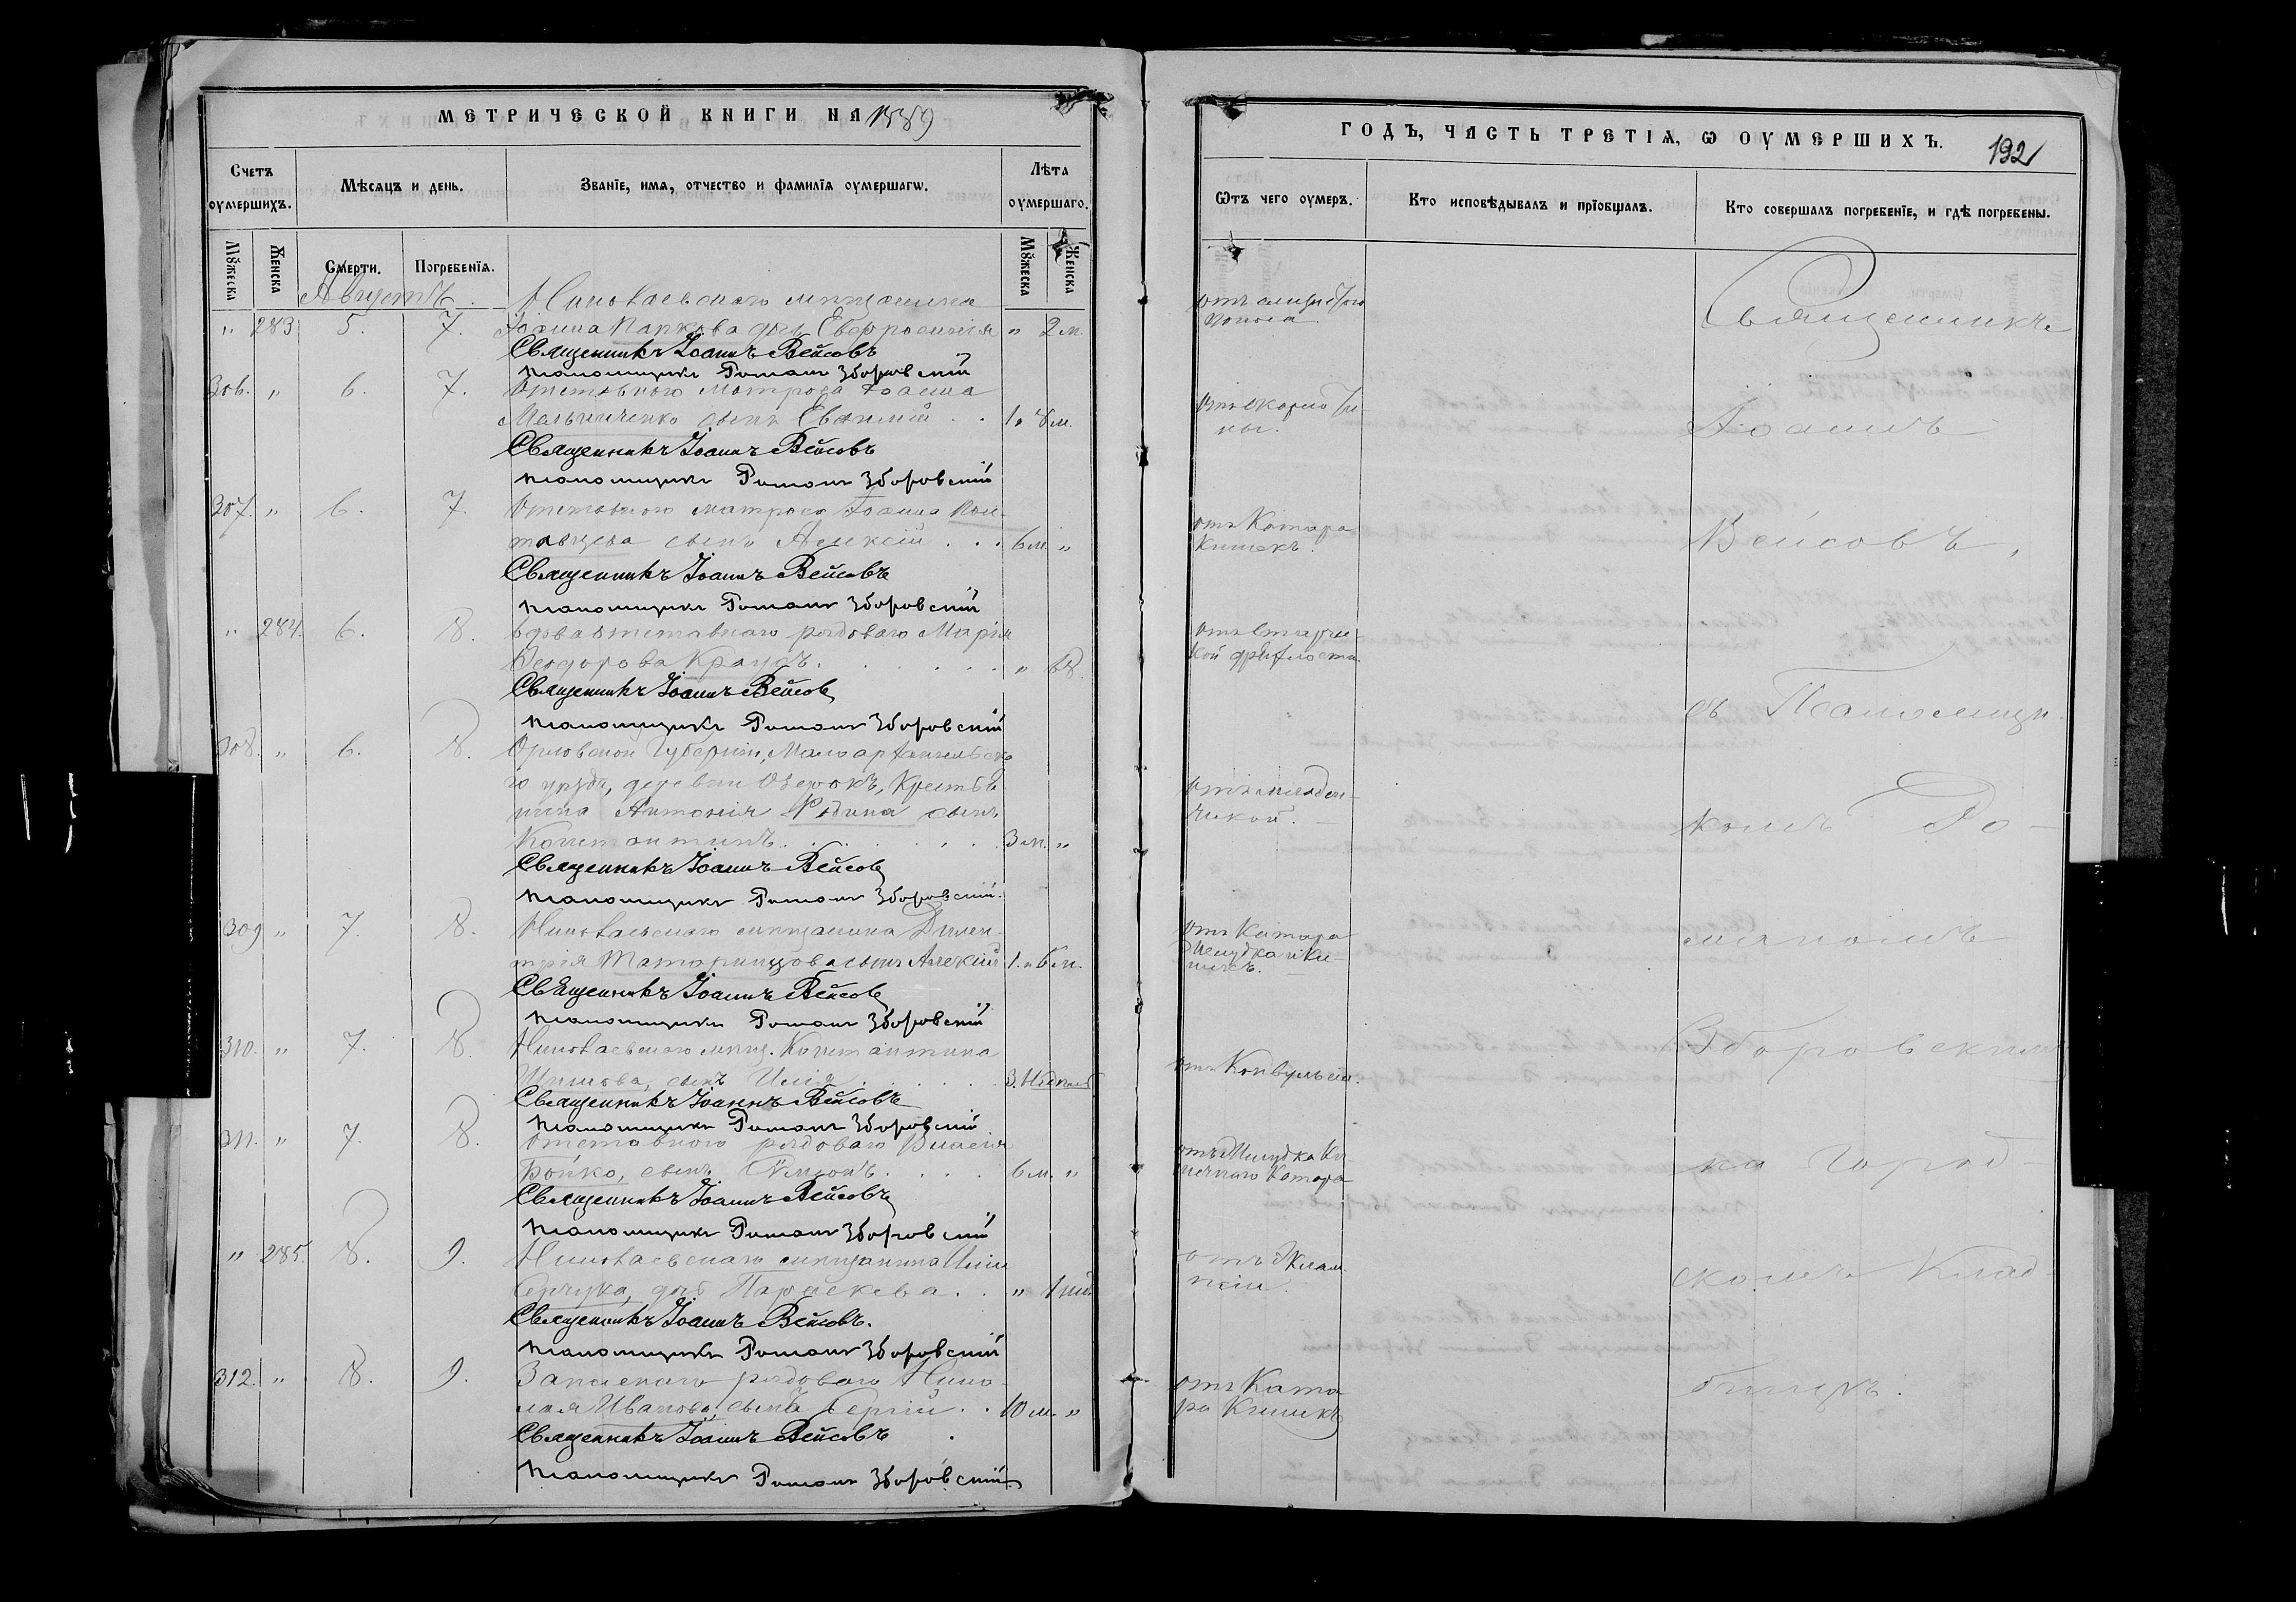 МЕТРИЧЕСКОЙ КНИГИ НА 1889
Счетъ оумершихъ.
Мѣсяцъ и день.
Званіе, имя, отчество и фамилія оумершагѡ.
Лѣта оумершаго.
Мꙋжеска
Женска
Смерти.
Погребенія.
Мꙋжеска
Женска
Августъ
Николаевскаго мѣщанина
" 283 5. 7. Іоанна Папкова дочь Евфросинія " 2 м.
Священникъ Іоаннъ Вейсовъ
Псаломщикъ Романъ Зборовскій
306. " 6. 7. Отставного матроса Іоанна
сынъ Евѳимій . . 1. 8 м.
Священникъ Іоаннъ Вейсовъ
Псаломщикъ Романъ Зборовскій
307. " 6. 7. Отставного матроса Іоанна Пол-
тавцева сынъ Алексій . . . 6 м. "
Священникъ Іоаннъ Вейсовъ
Псаломщикъ Романъ Зборовскій
" 284. 6. 8. Вдова отставнаго рядоваго Марія
Ѳеодорова Крауцъ. " 68.
Священникъ Іоаннъ Вейсовъ
Псаломщикъ Романъ Зборовскій
308. " 6. 8. Орловской Губерніи, Малоархангельска-
го уѣзда, деревни Озерокъ, Крестья-
нина Антонія Рѣдина сынъ
Константинъ. 3 м. "
Священникъ Іоаннъ Вейсовъ
Псаломщикъ Романъ Зборовскій.
309 " 7. 8. Николаевскаго мѣщанина Дими-
трія Татаринцова сынъ Алексій 1. 6 м.
Священникъ Іоаннъ Вейсовъ
Псаломщикъ Романъ Зборовскій
310. " 7. 8. Николаевскаго мѣщ. Константина
сынъ Илія 3. Недѣль
Священникъ Іоаннъ Вейсовъ
Псаломщикъ Романъ Зборовскій
311. " 7. 8. Отставного рядоваго Василія
Бойко, сынъ Сѷмеонъ. 6 м. "
Священникъ Іоаннъ Вейсовъ
Псаломщикъ Романъ Зборовскій
" 285. 8. 9. Николаевскаго мѣщанина Иліи
дочь Параскева. . " 1 нед.
Священникъ Іоаннъ Вейсовъ.
Псаломщикъ Романъ Зборовскій
312. " 8. 9. Запаснаго рядоваго Нико-
лая Иванова, сынъ Сергій . . 10 м. "
Священникъ Іоаннъ Вейсовъ
Псаломщикъ Романъ Зборовскій
ГОДЪ, ЧАСТЬ ТРЕТІѦ, Ѡ ОУМЕРШИХЪ.
192
Ѿтъ чего оумеръ.
Кто исповѣдывалъ и пріобщалъ.
Кто совершалъ погребеніе, и гдѣ погребены.
поноса.
Священникъ
отъ скарлати-
ны.
Іоаннъ
отъ Катара
Кишекъ.
Вейсовъ,
отъ старче-
ской дряхлости.
съ Псаломщи-
отъ младен-
ческой.
комъ Ро-
отъ Катара
желудка и Ки-
шекъ.
маномъ
отъ Конвульсіи.
Зборовскимъ
отъ Желудка Ки-
шечнаго Катара
на город-
отъ Эклам-
псіи.
скомъ Клад-
отъ Ката-
ра Кишекъ
бищѣ.